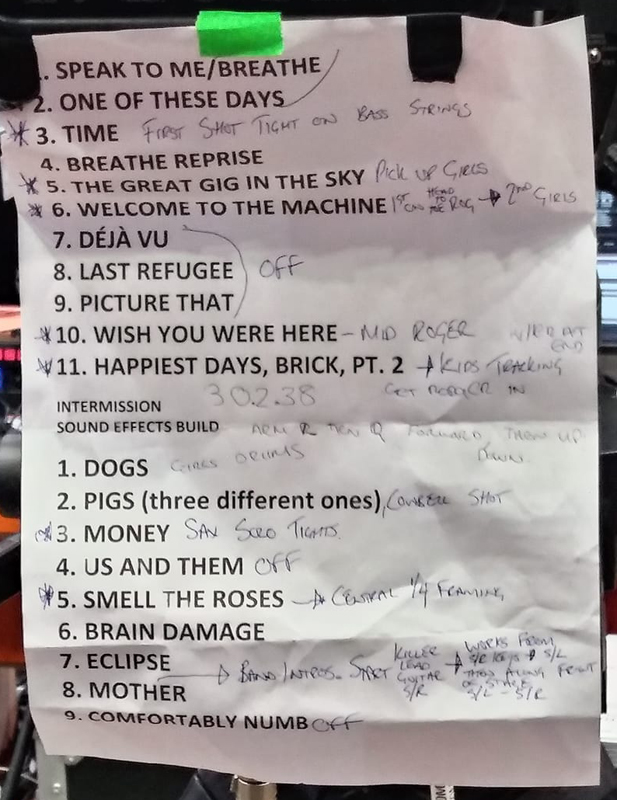 1. SPEAK TO ME/BREATHE
2. ONE OF THESE DAYS
3. TIME FIRST SHOT TIGHT ON BASS STRINGS
4. BREATHE REPRISE
5. THE GREAT GIG IN THE SKY PICK UP GIRLS
6. WELCOME TO THE MACHINE 1ST ON HEAD TO THE ROG → 2ND GIRLS
7. DÉJÀ VU
8. LAST REFUGEE OFF
9. PICTURE THAT
10. WISH YOU WERE HERE - MID ROGER END
11. HAPPIEST DAYS, BRICK, PT. 2 → KIDS TRACKING
GET ROGER IN
INTERMISSION 30.2.38
SOUND EFFECTS BUILD FORWARD, THEN UP DOWN
1. DOGS GIRLS DRUMS
2. PIGS (three different ones), COWBELL SHOT
3. MONEY SAX SOLO TIGHTS
4. US AND THEM OFF
5. SMELL THE ROSES → CENTRAL 1/4 FRAMING
6. BRAIN DAMAGE
7. ECLIPSE
→ BAND INTROS. START KILLER LEAD GUITAR S/R → WORKS FROM S/R KEYS → S/L THEN ALONG FRONT OF STAGE S/L - S/R
8. MOTHER
9. COMFORTABLY NUMB OFF